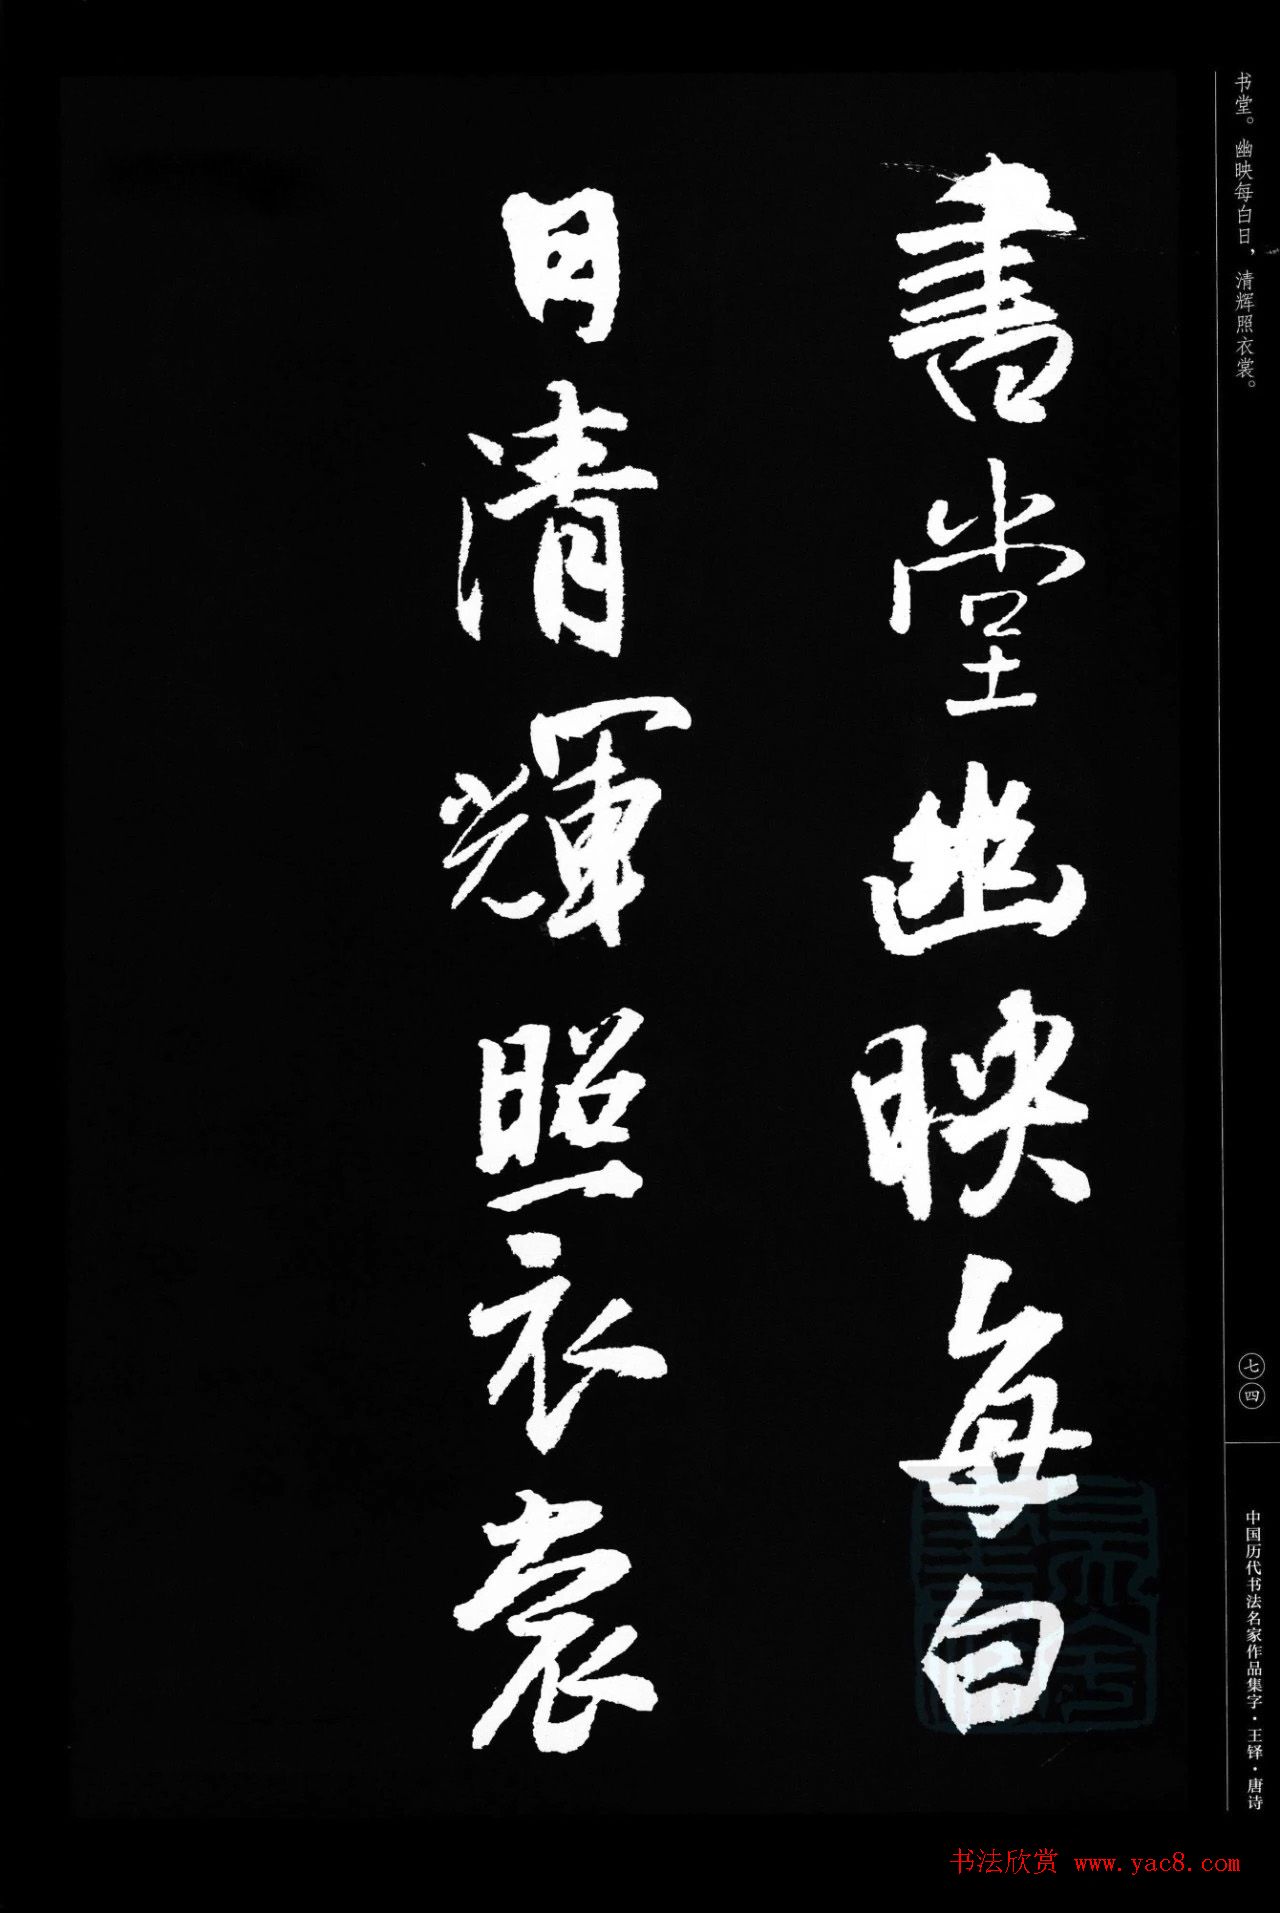 书堂。幽映每白日，清辉照衣裳。
書堂幽映每白
日清輝照衣裳
七四
中国历代书法名家作品集字·王铎·唐诗
书法欣赏 www.yac8.com